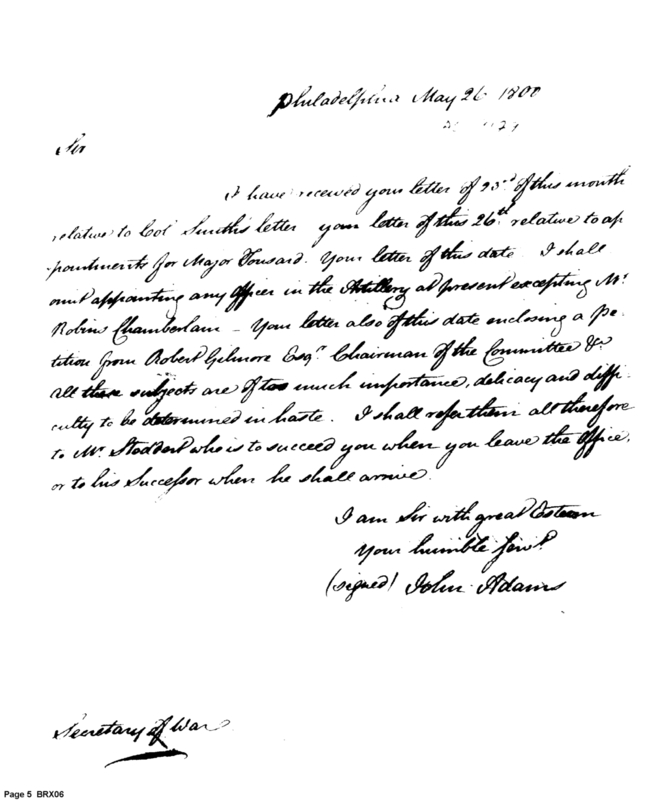 Philadelphia May 26 1800
Sir
I have received your letter of 23.d of this month
relative to Col Smith's letter your letter of this 26.th relative to ap
pointments for Major Tousard. Your letter of this date. I shall
omit appointing any Officer in the Artillery at present excepting Mr.
Robins Chamberlain – Your letter also of this date enclosing a pe-
tition from Robert Gilmore Esq.r Chairman of the Committee &c.
All these subjects are of too much importance, delicacy and diffi-
culty to be determined in haste. I shall refer them all therefore
to Mr. Stoddert who is to succeed you when you leave the Office,
or to his Successor when he shall arrive.
I am Sir with great Esteem
Your humble Serv.t
(signed) John Adams
Secretary of War
Page 5 BRX06